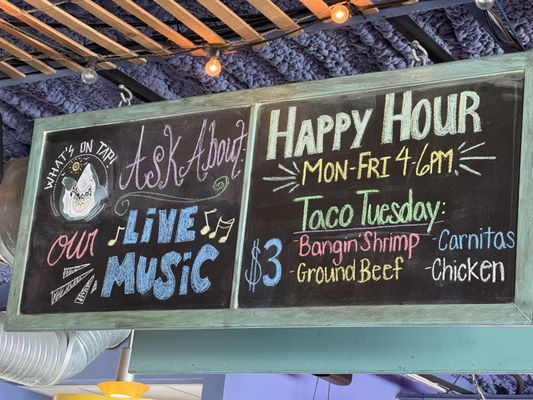 WHAT'S ON TAP?
Ask About
our
Live
Music
Happy Hour
Mon-Fri 4-6pm
Taco Tuesday:
$3
-Bangin Shrimp -Carnitas
-Ground Beef -Chicken